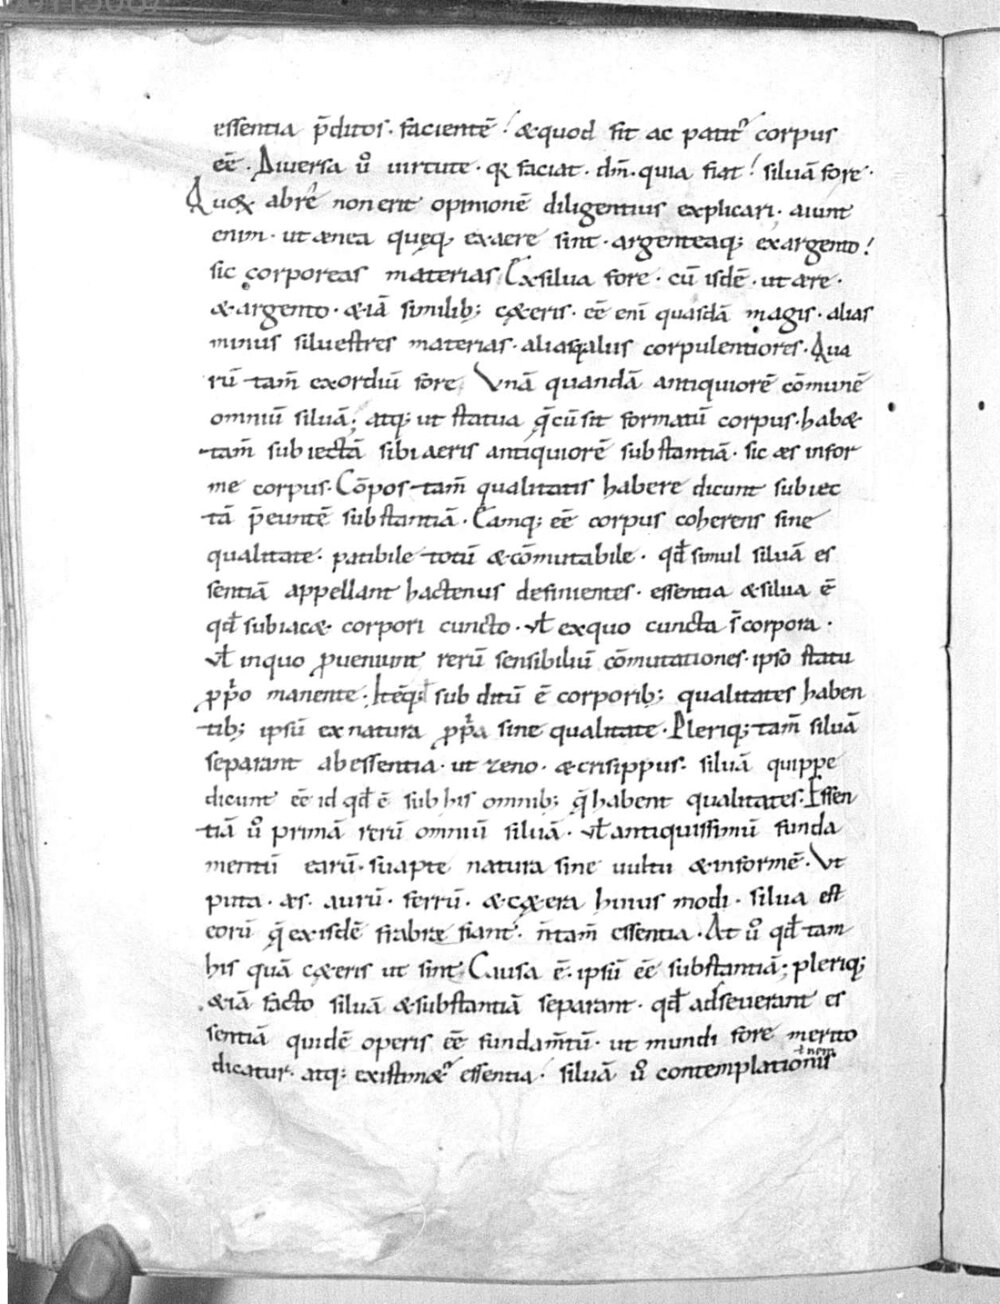 essentia p̄ditos. facientē! & quod fit ac patit᷑ corpus
eē. Diversa ū virtute. q̨ faciat. dm̄. quia fiat! silvā fore.
Quoꝝ abrē non erit opinionē diligentius explicari. aiunt
enim. ut ænea quęq; ex aere sint. argenteaq; ex argento!
sic corporeas materias Ex silva fore. cū isdē. ut aere.
& argento. & iā similib; c&eris. eē enī quasdā magis. alias
minus silvestres materias. alias alus corpulentiores. Qua
rū tam̄ exordiū fore, Vnā quandā antiquiorē cōmunē
omniū silvā; atq; ut statua q̄ cū sit formatū corpus. hab&
tam̄ subiectā sibi aeris antiquiorē substantiā. sic æs infor
me corpus. Cōpos tam̄ qualitatis habere dicunt subiec
tā p̄euntē substantiā. Eamq; eē corpus coherens sine
qualitate. patibile totū & cōmutabile. qđ simul silvā es
sentiā appellant hactenus desinientes. essentia & silva ē
qđ subiac& corpori cuncto. vł ex quo cuncta s̄ corpora.
vł in quo ꝓveniunt rerū sensibiliū cōmutationes. ipso statu
ꝓp̄o manente. Itēq; qđ subditū ē corporib; qualitates haben
tib; ipsū ex natura ꝓp̄a sine qualitate. Pleriq; tam̄ silvā
separant ab essentia. ut zeno. & crisippus. silvā quippe
dicunt eē id qđ ē sub his omnib; q̄ habent qualitates. Essen
tiā ū primā rerū omniū silvā. vł antiquissimū funda
mentū earū. suapte natura sine vultu & informē. Vt
puta. æs. aurū. ferrū. & c&era huius modi. silva est
eorū q̄ ex isdē fiabræ fiant. n̄ tam̄ essentia. At ū qđ tam
his quā c&eris ut sint. Causa ē. ipsū eē substantiā; pleriq;
&iā facto silvā & substantiā separant. qđ adseverant es
sentiā quidē operis eē fundam̄tū. ut mundi fore merito
dicatur. atq; existim&᷑ essentia. silvā ū contemplationis
ł nem